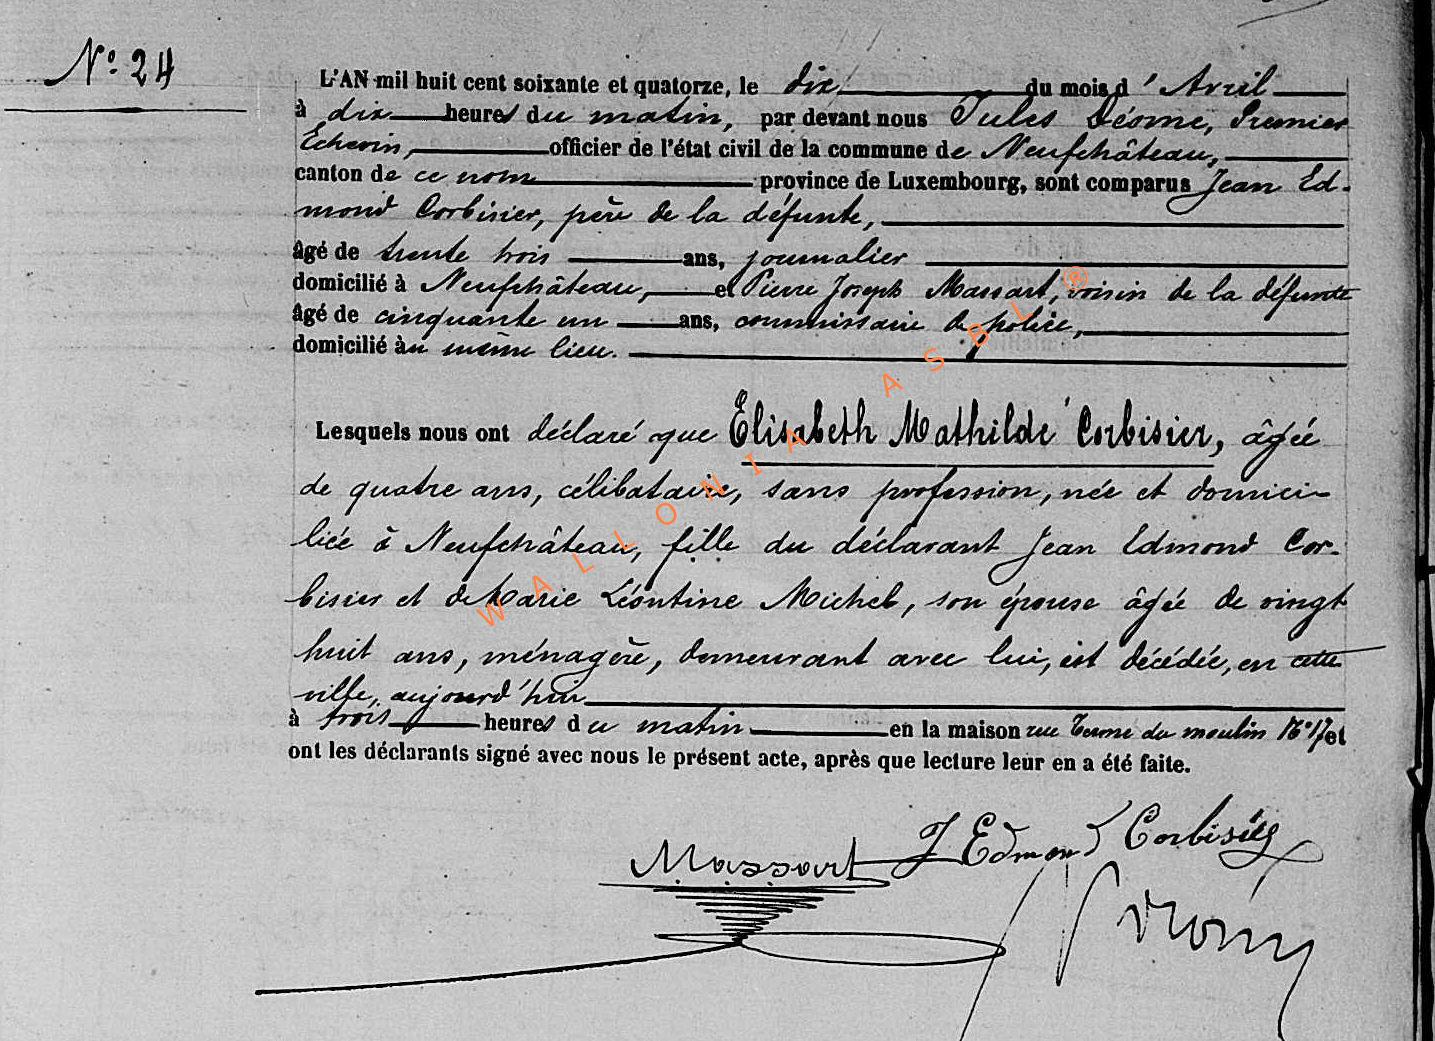 N° 24
L'AN mil huit cent soixante et quatorze, le dix du mois d'Avril
à dix heures du matin, par devant nous Jules Déome, Premier
Echevin, officier de l'état civil de la commune de Neufchâteau,
canton de ce nom province de Luxembourg, sont comparus Jean Ed-
mond Corbisier, père de la défunte,
âgé de trente trois ans, journalier
domicilié à Neufchâteau, et Pierre Joseph Massart, voisin de la défunte
âgé de cinquante un ans, commissaire de police,
domicilié au même lieu.
Lesquels nous ont déclaré que Elisabeth Mathilde Corbisier, âgée
de quatre ans, célibataire, sans profession, née et domici-
liée à Neufchâteau, fille du déclarant Jean Edmond Cor-
bisier et de Marie Léontine Michel, son épouse âgée de vingt
huit ans, ménagère, demeurant avec lui, est décédée, en cette
ville, aujourd'hui
à trois heures du matin en la maison rue du moulin N° 17 et
ont les déclarants signé avec nous le présent acte, après que lecture leur en a été faite.
Massart J Edmond Corbisier
WALLONIA ASBL ®